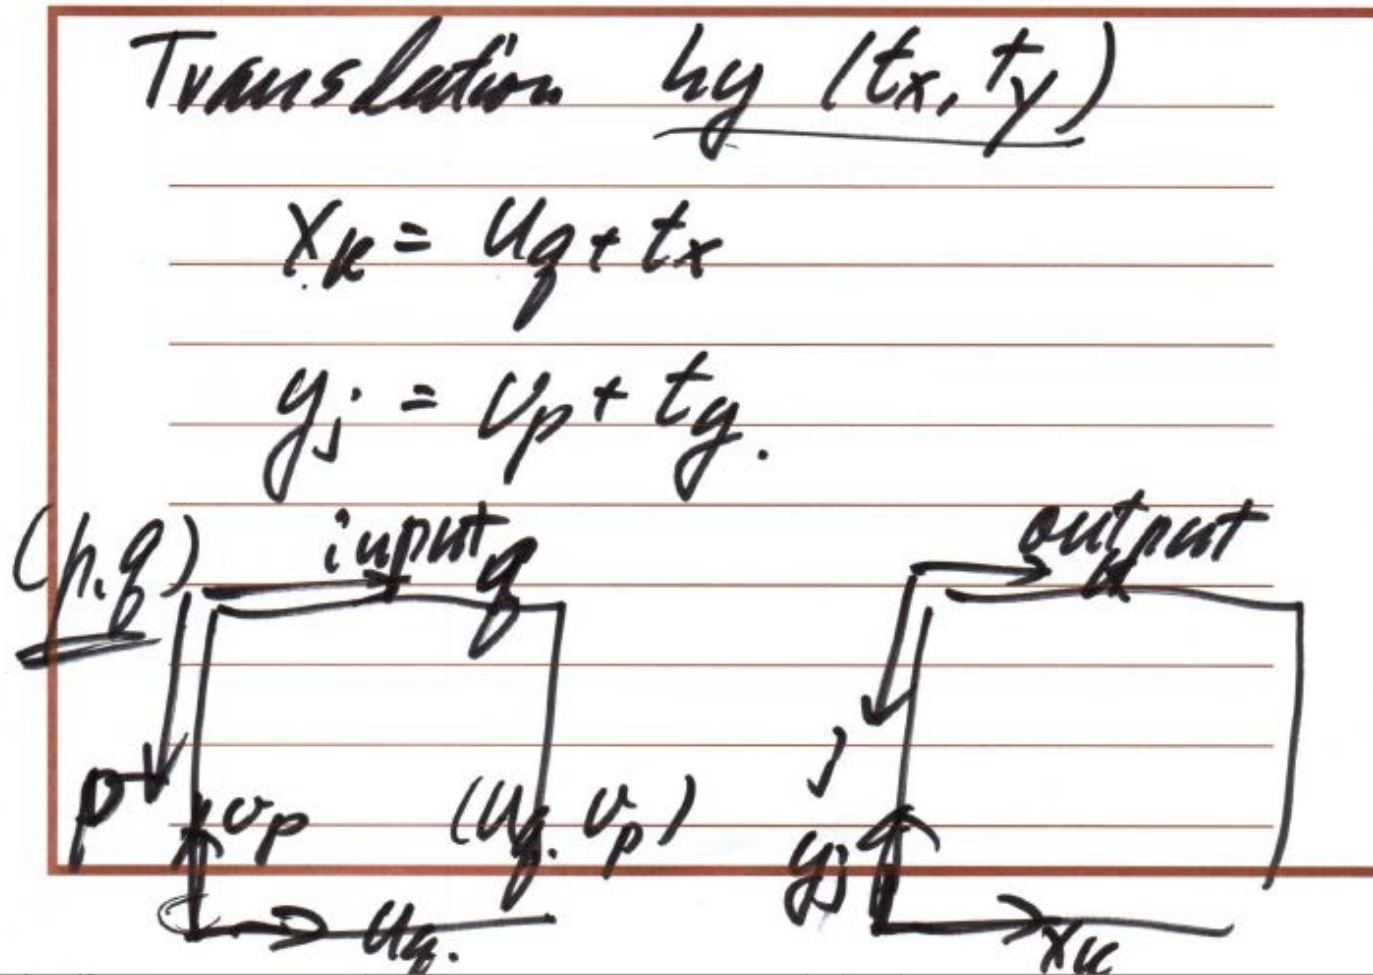 Translation by (tx, ty)
xk = uq + tx
yj = vp + ty.
(p,q) input q output k
p j
vp (uq, vp) yj
uq. xk